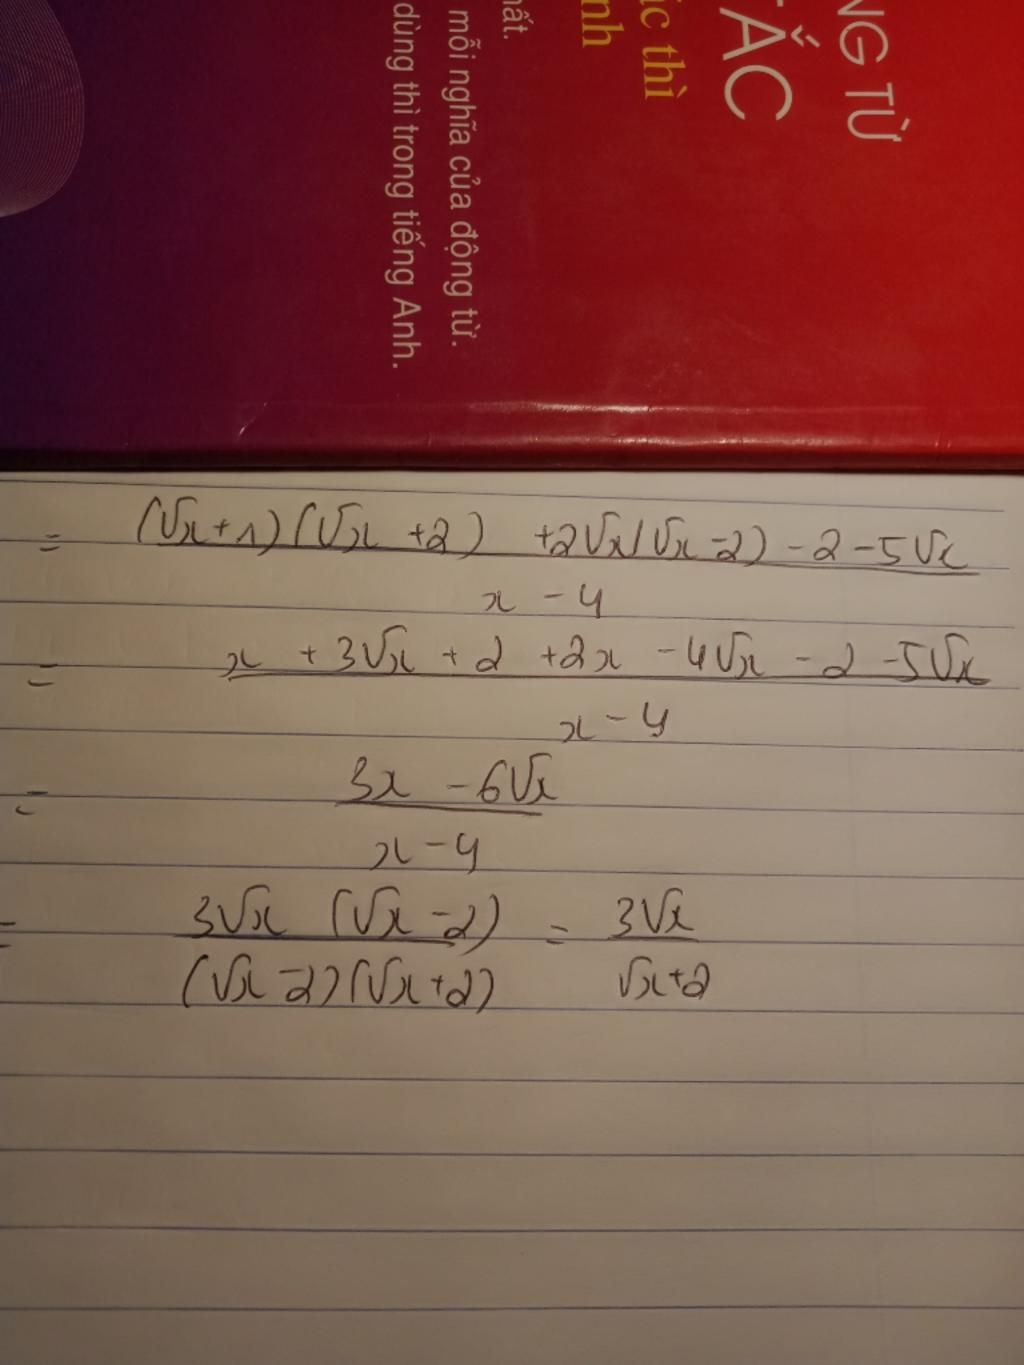 NG TỪ
ẮC
ic thì
nh
hất.
mỗi nghĩa của động từ.
dùng thì trong tiếng Anh.
= (√x+1)(√x+2) +2√x(√x-2) -2 -5√x
x - 4
= x + 3√x + 2 + 2x - 4√x - 2 - 5√x
x - 4
= 3x - 6√x
x - 4
= 3√x (√x - 2) = 3√x
(√x - 2)(√x + 2) √x+2